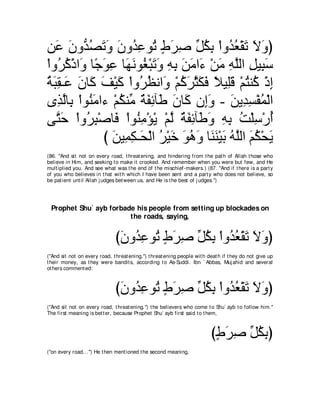 ﴿وَلاَ تَقْعُدُواْ بِكُلِّ صِرَطٍ تُوعِدُونَ وَتَصُدُّونَ عَن
سَبِيلِ اللَّهِ مَنْ ءَامَنَ بِهِ وَتَبْغُونَهَا عِوَجًا وَاذْكُرُواْ
إِذْ كُنتُمْ قَلِيلاً فَكَثَّرَكُمْ وَانظُرُواْ كَيْفَ كَانَ عَـقِبَةُ
الْمُفْسِدِينَ - وَإِن كَانَ طَآئِفَةٌ مِّنكُمْ ءَامَنُواْ بِالَّذِى
أُرْسِلْتُ بِهِ وَطَآئِفَةٌ لَّمْ يُؤْمِنُواْ فَاصْبِرُواْ حَتَّى
يَحْكُمَ اللَّهُ بَيْنَنَا وَهُوَ خَيْرُ الْحَـكِمِينَ ﴾
(86. "And sit not on every road, threatening, and hindering from the path of Allah those who
believe in Him, and seeking to make it crooked. And remember when you were but few, and He
multiplied you. And see what was the end of the mischief-makers.) (87. "And if there is a party
of you who believes in that with which I have been sent and a party who does not believe, so
be patient until Allah judges between us, and He is the best of judges.")
Prophet Shu`ayb forbade his people from setting up blockades on
the roads, saying,
﴿وَلاَ تَقْعُدُواْ بِكُلِّ صِرَطٍ تُوعِدُونَ﴾
("And sit not on every road, threatening,") threatening people with death if they do not give up
their money, as they were bandits, according to As-Suddi. Ibn `Abbas, Mujahid and several
others commented:
﴿وَلاَ تَقْعُدُواْ بِكُلِّ صِرَطٍ تُوعِدُونَ﴾
("And sit not on every road, threatening.") the believers who come to Shu`ayb to follow him."
The first meaning is better, because Prophet Shu`ayb first said to them,
﴿بِكُلِّ صِرَطٍ﴾
("on every road...") He then mentioned the second meaning,